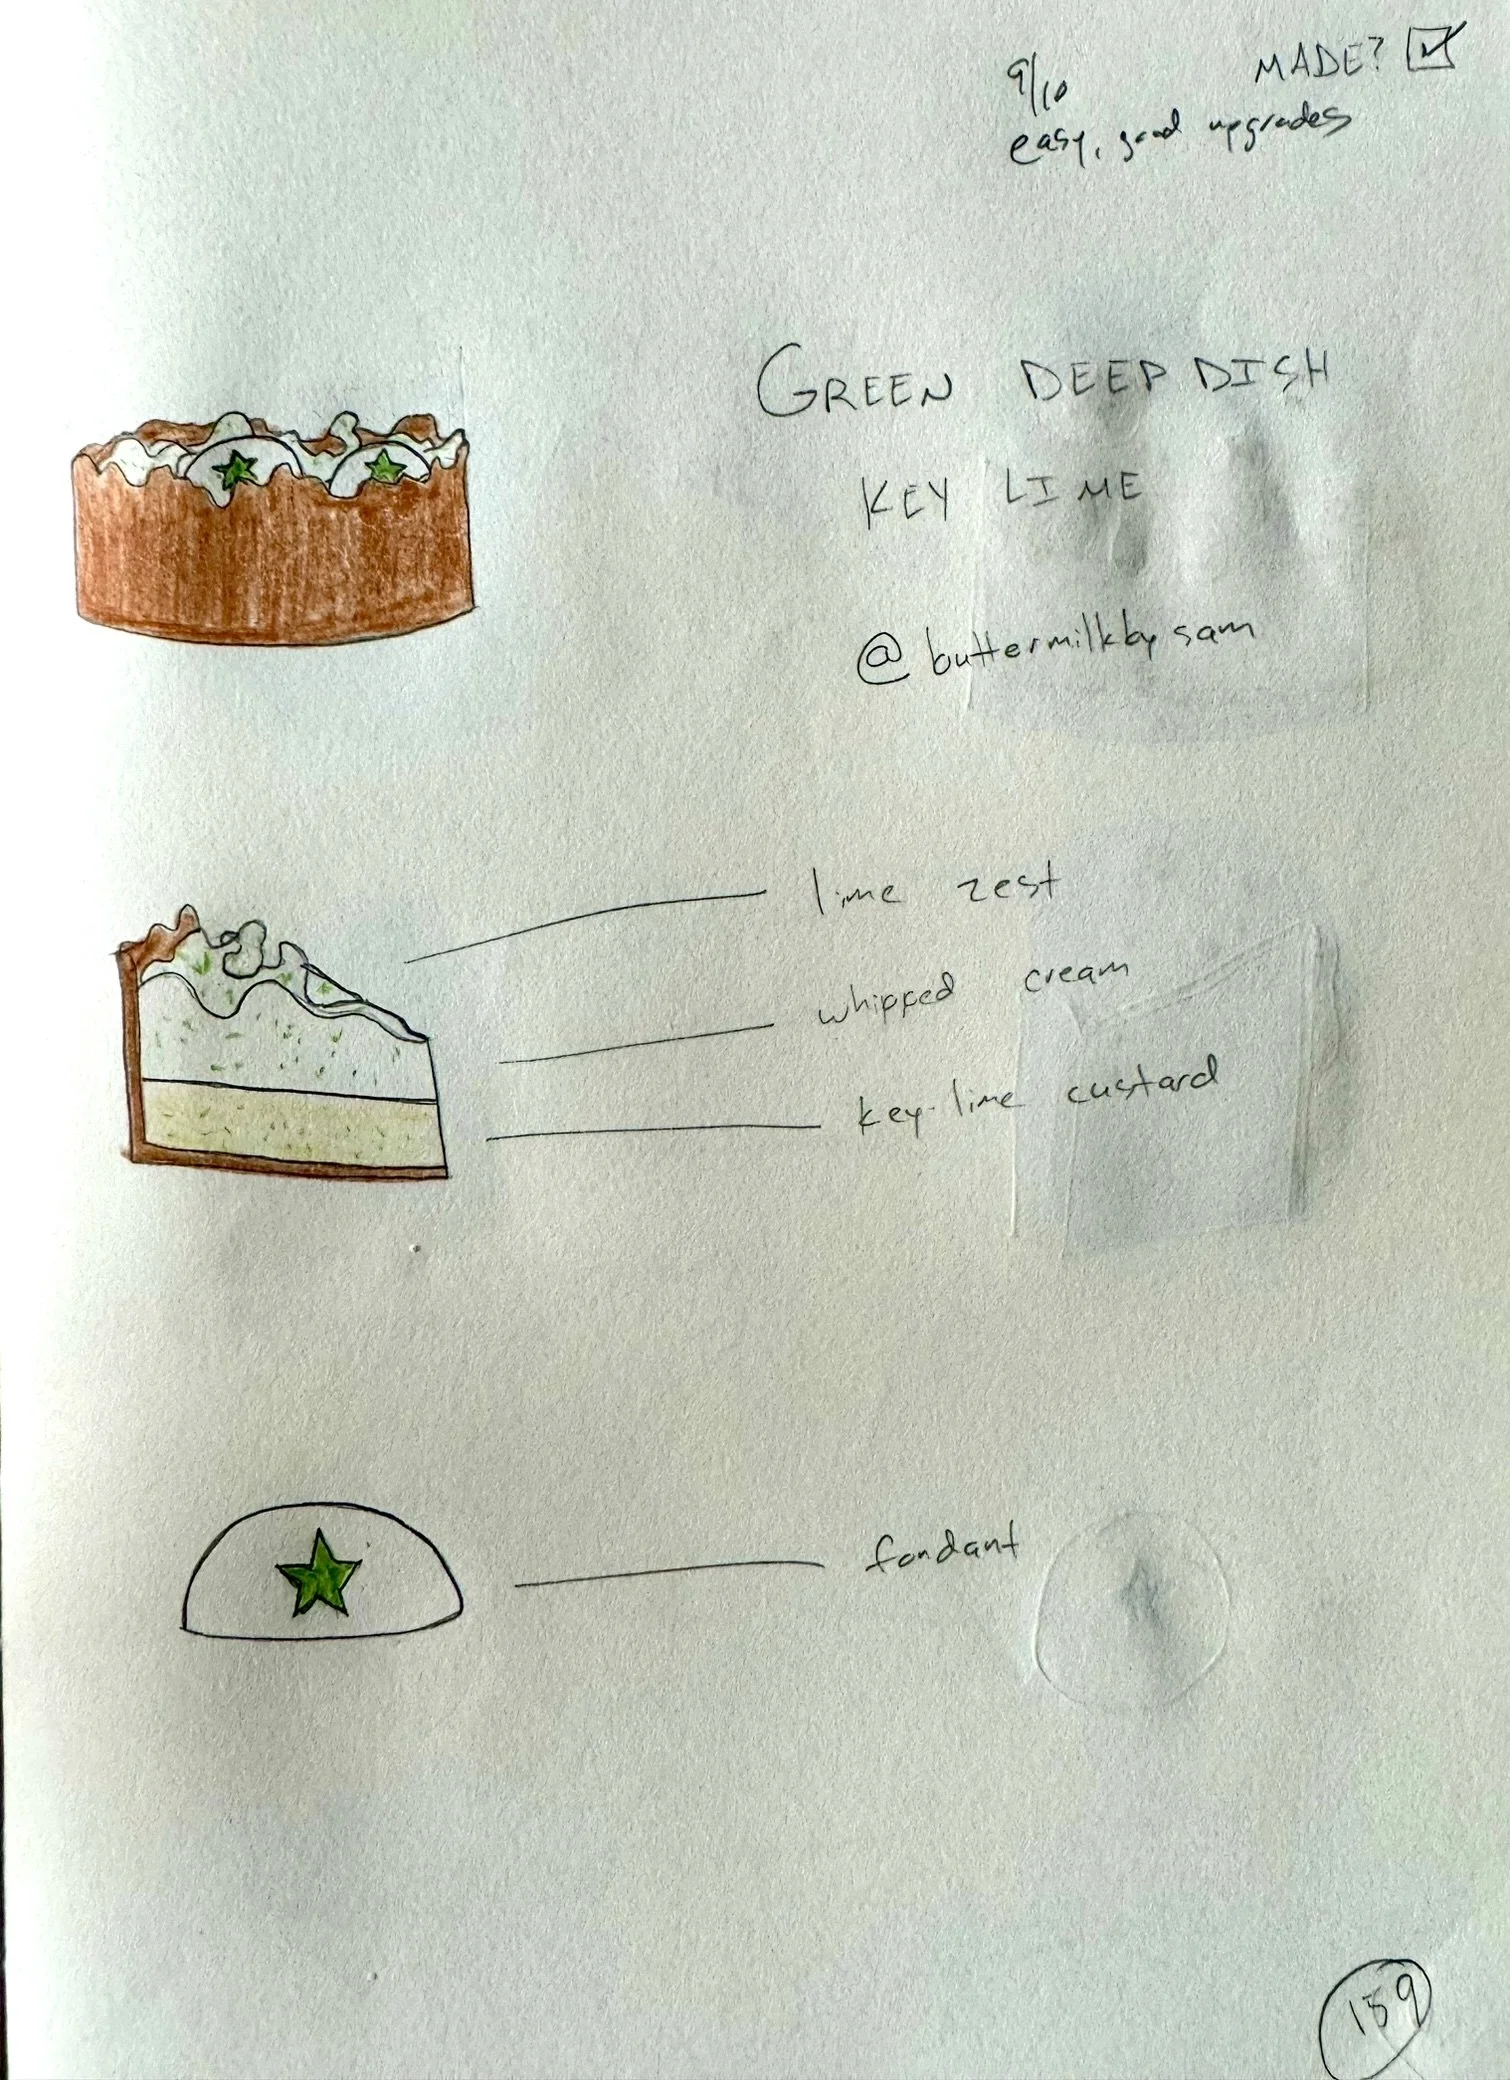 9/10
MADE?
easy, good upgrades
GREEN DEEP DISH
KEY LIME
@buttermilkbysam
lime zest
whipped cream
key-lime custard
fondant
159